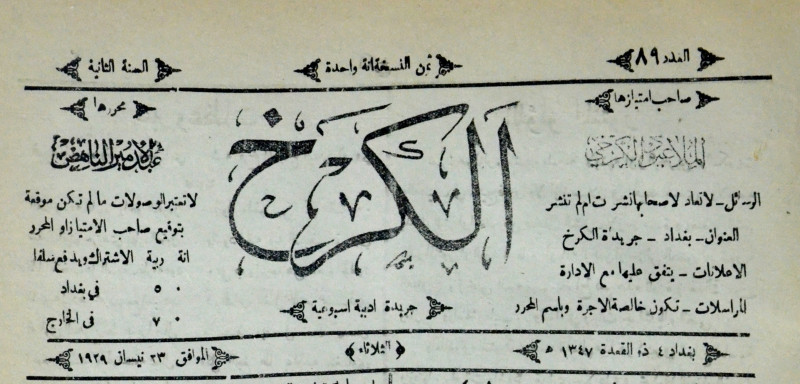 العدد ٨٩
ثمن النسخة انة واحدة
السنة الثانية
صاحب امتيازها
الملا عبود الكرخي
الرسائل ـ لا تعاد لاصحابها نشرت ام لم تنشر
العنوان ـ بغداد ـ جريدة الكرخ
الاعلانات ـ يتفق عليها مع الادارة
المراسلات ـ تكون خالصة الاجرة وباسم المحرر
الكرخ
جريدة ادبية اسبوعية
محررها
عبد الامير الناهض
لا تعتبر الوصولات ما لم تكن موقعة
بتوقيع صاحب الامتياز او المحرر
انة ربية الاشتراك ويدفع سلفا
٠ ٥ في بغداد
٠ ٧ في الخارج
بغداد ٤ ذو القعدة ١٣٤٧ ه
الثلاثاء
الموافق ٢٣ نيسان ١٩٢٩